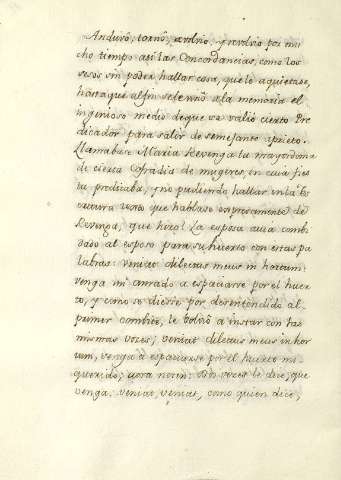 Anduvo, tornò, abrio, y rebolvio por mu
cho tiempo asi las Concordancias, como los
sesos sin poder hallar cosa, que le aquietase,
hasta que al fin se le vino a la memoria el
ingenioso medio de que se valio cierto Pre
dicador para salir de semejante aprieto.
Llamabase Maria Revenga la mayordoma
de cierta Cofradia de mugeres, en cuia fies
ta predicaba, y no pudiendo hallar en la Es
critura texto que hablase expresamente de
Revenga, que hizo? La esposa avia combi
dado al esposo para su huerto con estas pa
labras: veniat dilectus meus in hortum:
venga mi amado a espaciarse por el huer
to, y como se diesse por desentendido al
primer combite, le bolvió a instar con las
mismas voces; veniat dilectus meus in hor
tum, venga a espaciarse por el huerto mi
querido; aora noten: dos voces le dice, que
venga: veniat, veniat, como quien dice,